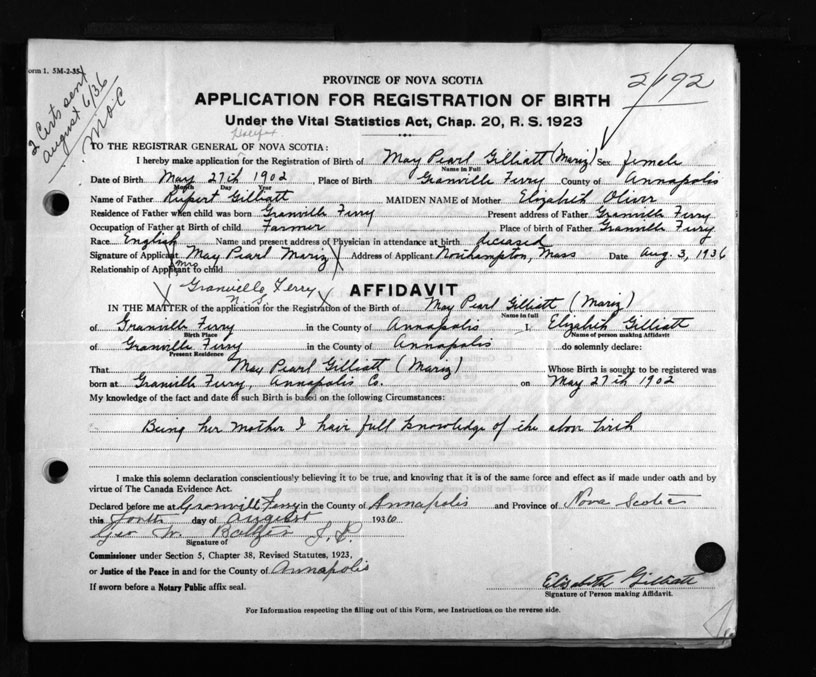 orm 1. 5M-2-35
2 Certs sent
August 6/36
M O C
2192
PROVINCE OF NOVA SCOTIA
APPLICATION FOR REGISTRATION OF BIRTH
Under the Vital Statistics Act, Chap. 20, R. S. 1923
Halifax
TO THE REGISTRAR GENERAL OF NOVA SCOTIA:
I hereby make application for the Registration of Birth of May Pearl Gilliatt (Mariz) Sex female
Name in Full
Date of Birth May 27th 1902 Place of Birth Granville Ferry County of Annapolis
Month Day Year
Name of Father Rupert Gilliatt MAIDEN NAME of Mother Elizabeth Oliver
Residence of Father when child was born Granville Ferry Present address of Father Granville Ferry
Occupation of Father at Birth of child Farmer Place of birth of Father Granville Ferry
Race English Name and present address of Physician in attendance at birth diceased
Signature of Applicant Mrs May Pearl Mariz Address of Applicant Northampton, Mass Date Aug. 3, 1936
Relationship of Applicant to child
Granville Ferry
N. S.
AFFIDAVIT
IN THE MATTER of the application for the Registration of the Birth of May Pearl Gilliatt (Mariz)
Name in full
of Granville Ferry in the County of Annapolis I, Elizabeth Gilliatt
Birth Place (Name of person making Affidavit
of Granville Ferry in the County of Annapolis do solemnly declare:
Present Residence
That May Pearl Gilliatt (Mariz) Whose Birth is sought to be registered was
born at Granville Ferry, Annapolis Co. on May 27th 1902
My knowledge of the fact and date of such Birth is based on the following Circumstances:
Being her mother I have full knowledge of the above birth
I make this solemn declaration conscientiously believing it to be true, and knowing that it is of the same force and effect as if made under oath and by
virtue of The Canada Evidence Act.
Declared before me at Granville Ferry in the County of Annapolis and Province of Nova Scotia
this day of August 1936
Geo W. J. P.
Signature of
Commissioner under Section 5, Chapter 38, Revised Statutes, 1923,
or Justice of the Peace in and for the County of Annapolis
If sworn before a Notary Public affix seal.
Elizabeth Gilliatt
Signature of Person making Affidavit.
For Information respecting the filling out of this Form, see Instructions on the reverse side.